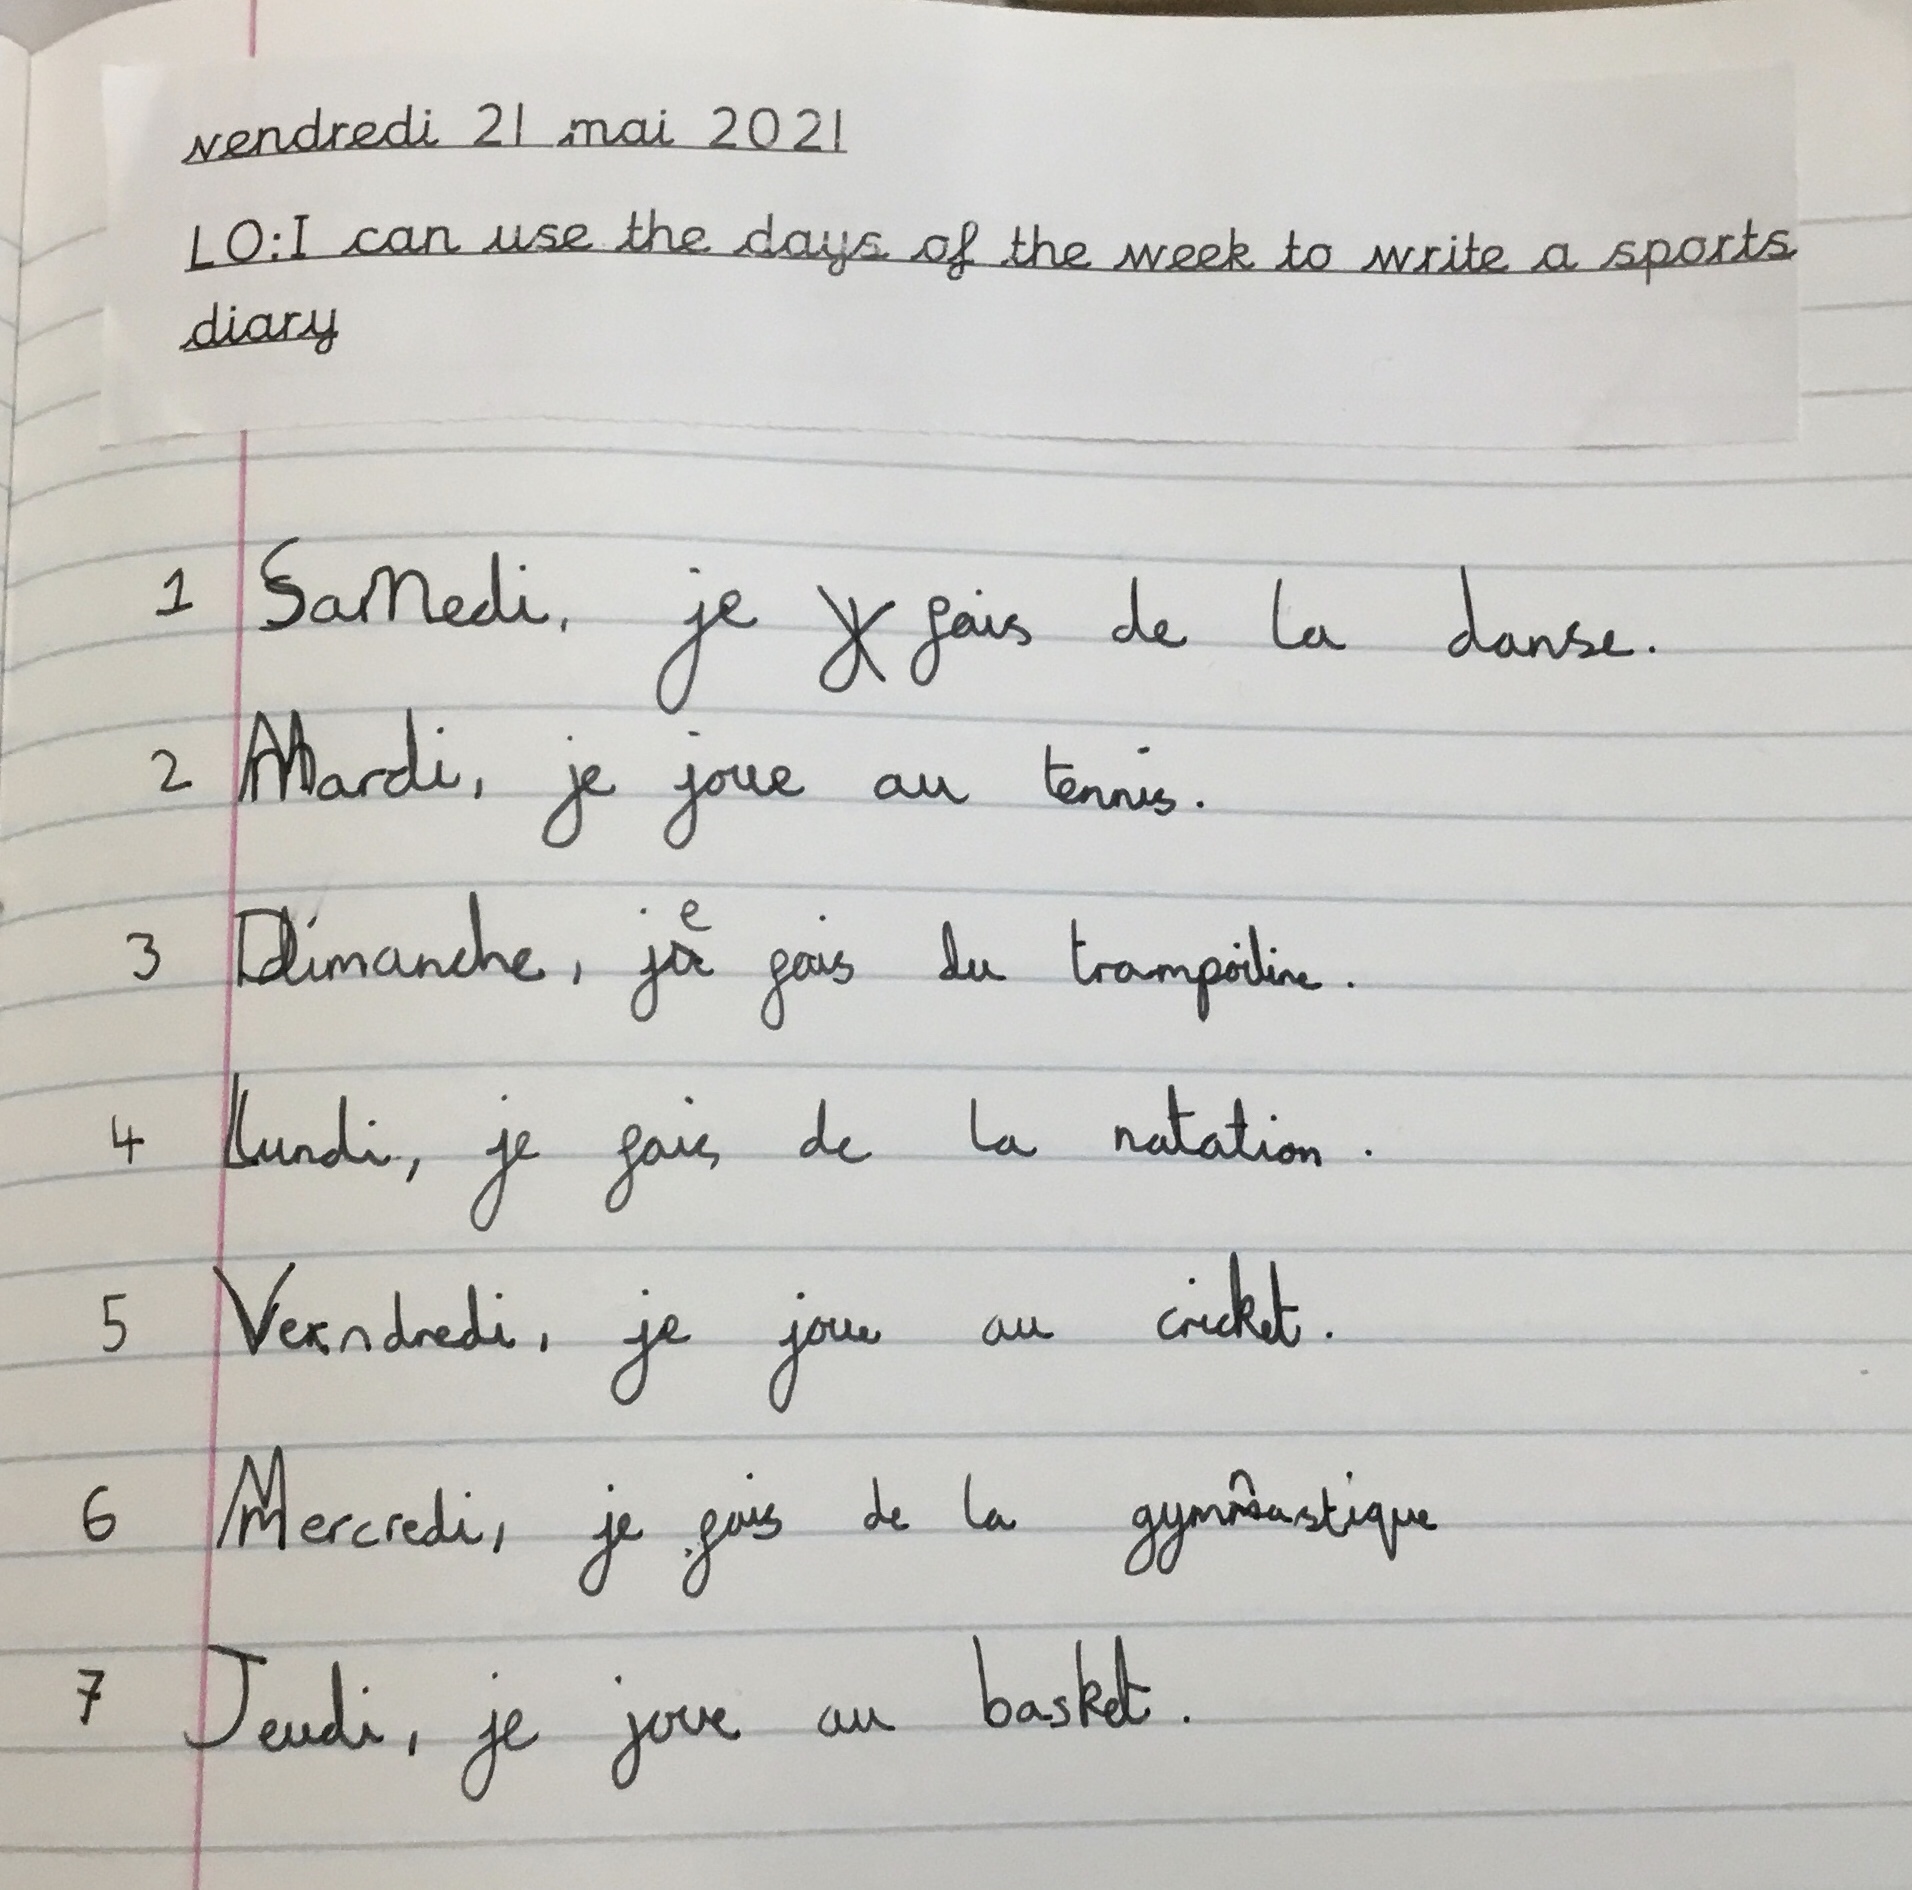 vendredi 21 mai 2021
LO: I can use the days of the week to write a sports
diary
1 Samedi, je fais de la danse.
2 Mardi, je joue au tennis.
3 Dimanche, je fais du trampoline.
4 Lundi, je fais de la natation.
5 Vendredi, je joue au cricket.
6 Mercredi, je fais de la gymnastique
7 Jeudi, je joue au basket.